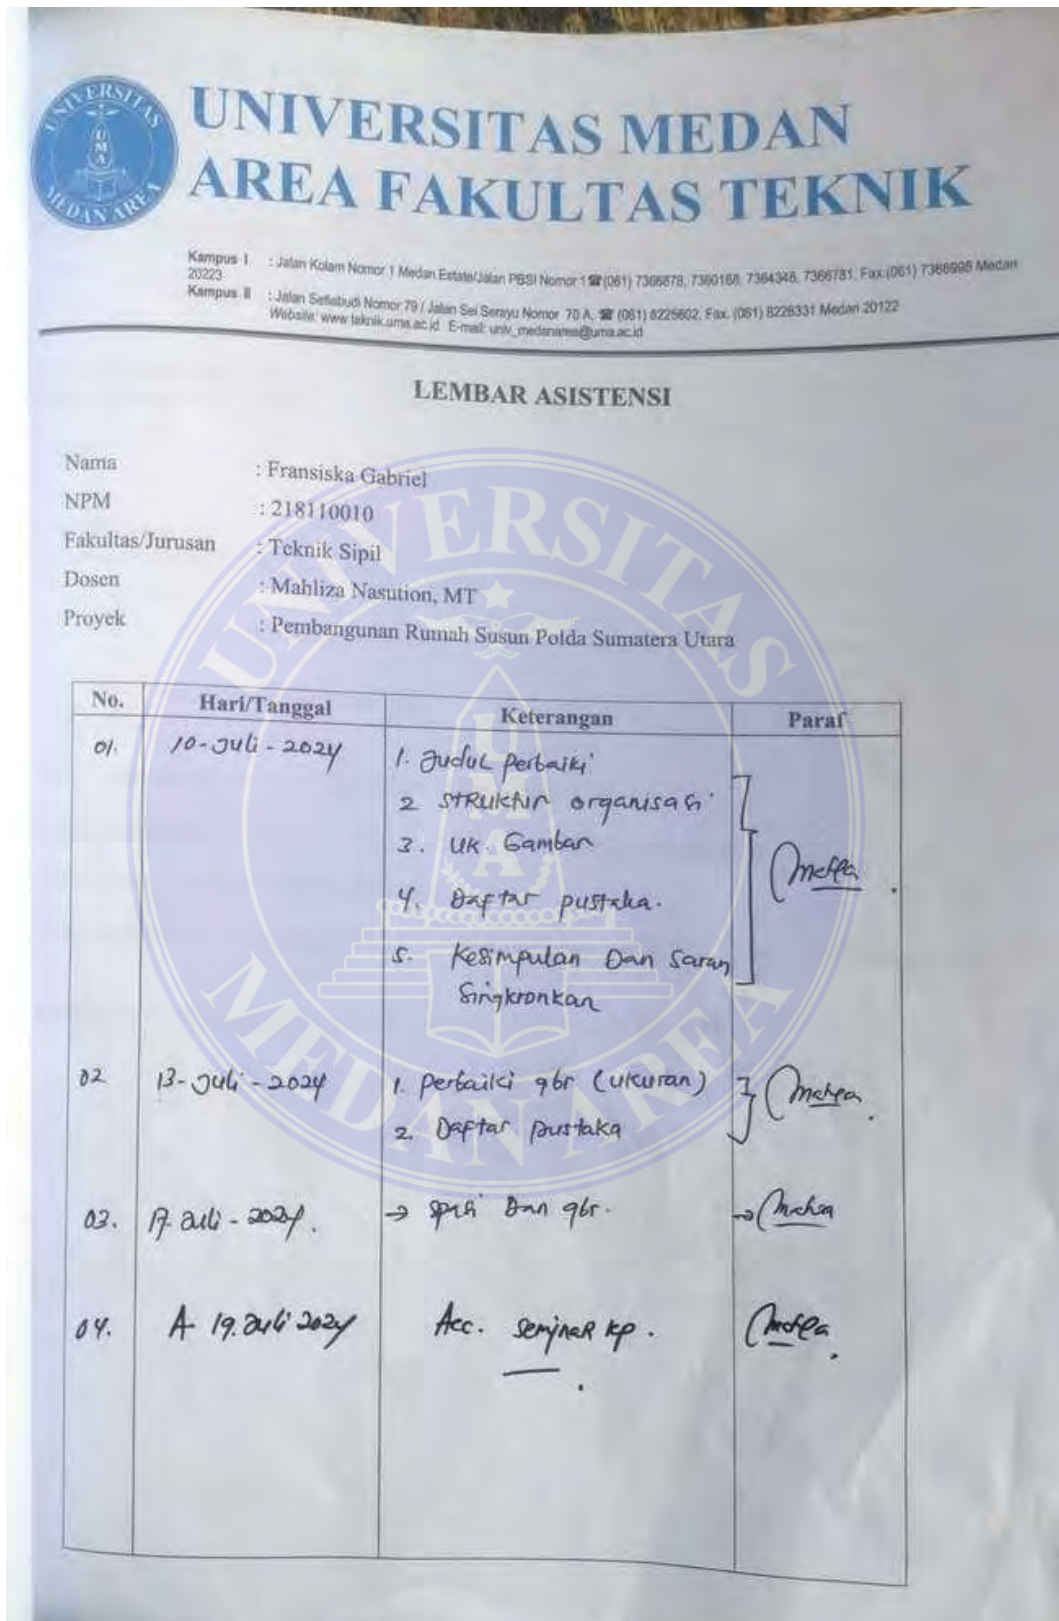 UNIVERSITAS MEDAN
AREA FAKULTAS TEKNIK
UNIVERSITAS
UMA
MEDAN AREA
Kampus I : Jalan Kolam Nomor 1 Medan Estate/Jalan PBSI Nomor 1 ☎ (061) 7366878, 7360168, 7364348, 7366781, Fax.(061) 7366998 Medan
20223
Kampus II : Jalan Setiabudi Nomor 79 / Jalan Sei Serayu Nomor 70 A, ☎ (061) 8225602, Fax. (061) 8226331 Medan 20122
Website: www.teknik.uma.ac.id E-mail: univ_medanarea@uma.ac.id
LEMBAR ASISTENSI
Nama : Fransiska Gabriel
NPM : 218110010
Fakultas/Jurusan : Teknik Sipil
Dosen : Mahliza Nasution, MT
Proyek : Pembangunan Rumah Susun Polda Sumatera Utara
UNIVERSITAS
UMA
MEDAN AREA
No. Hari/Tanggal Keterangan Paraf
01. 10-Juli-2024 1. Judul Perbaiki
2 Struktur organisasi
3. Uk. Gambar
4. Daftar pustaka.
5. Kesimpulan Dan Saran
Singkronkan
02 13-Juli-2024 1. perbaiki gbr (ukuran)
2. Daftar pustaka
03. 17. Juli-2024. → spasi Dan gbr.
04. 19. Juli 2024 Acc. Seminar KP.